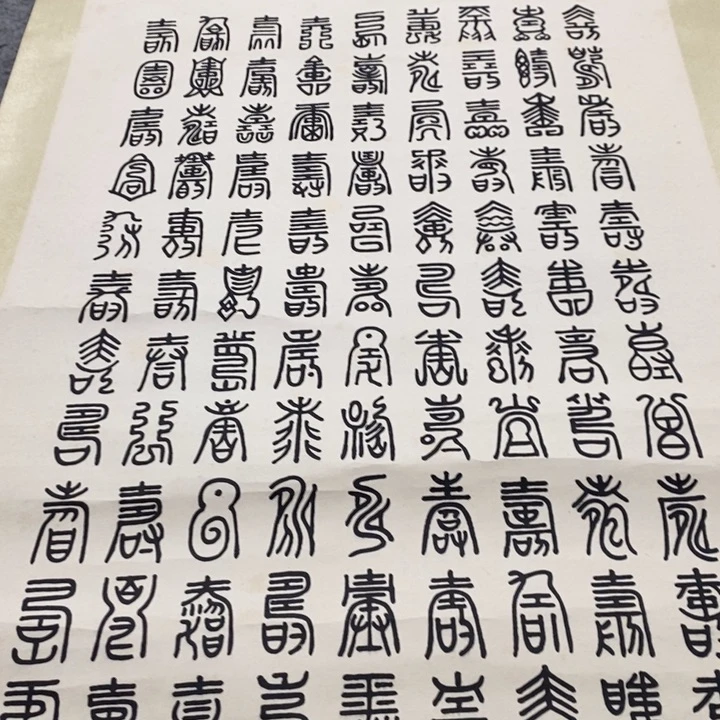 壽壽壽壽壽壽壽壽壽
壽壽壽壽壽壽壽壽壽
壽壽壽壽壽壽壽壽壽
壽壽壽壽壽壽壽壽壽
壽壽壽壽壽壽壽壽壽
壽壽壽壽壽壽壽壽壽
壽壽壽壽壽壽壽壽壽
壽壽壽壽壽壽壽壽壽
壽壽壽壽壽壽壽壽壽
壽壽壽壽壽壽壽壽壽